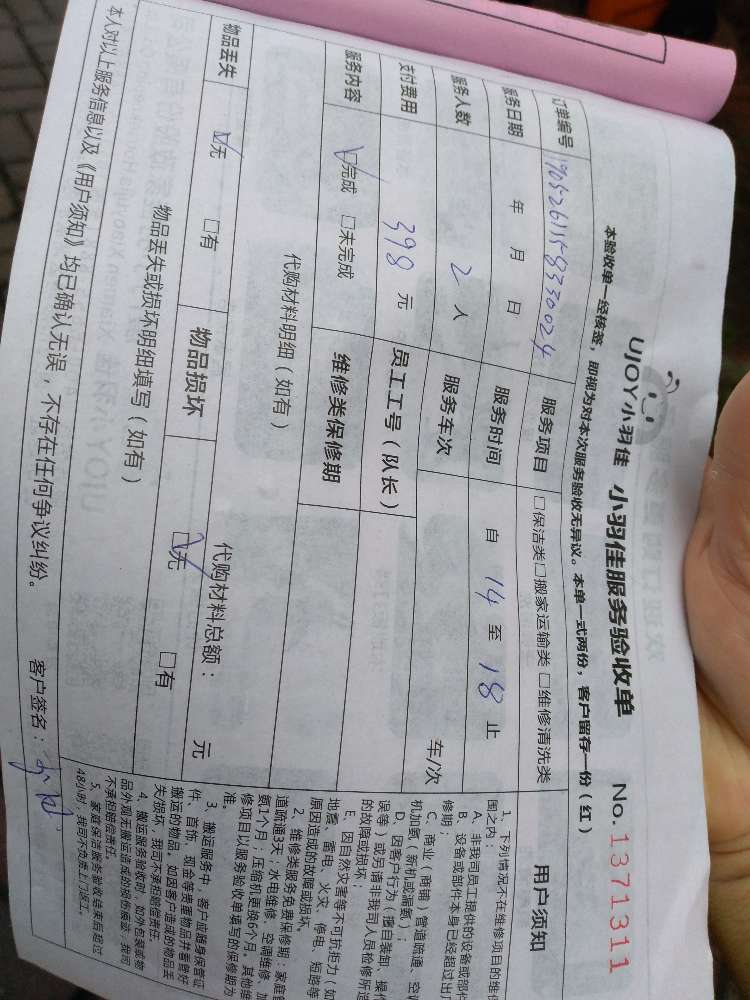 UJOY小羽佳 小羽佳服务验收单 No.1371311
本验收单一经核签，即视为对本次服务验收无异议。本单一式两份，客户留存一份（红）
订单编号 1905261158330024 服务项目 □保洁类□搬家运输类 □维修清洗类
服务日期 年 月 日 服务时间 自 14 至 18 止
服务人数 2 人 服务车次 车/次
支付费用 398 元 员工工号（队长）
服务内容 ☑完成 □未完成 维修类保修期
代购材料明细（如有） 代购材料总额： 元
物品丢失 ☑无 □有 物品损坏 ☑无 □有
物品丢失或损坏明细填写（如有）
本人对以上服务信息以及《用户须知》均已确认无误，不存在任何争议纠纷。 客户签名：
用户须知
1、下列情况不在维修项目的维保
围之内：
A、非我司员工提供的设备或部件
B、设备或部件本身已经超过出厂
修期；
C、商业（商铺）管道疏通、空调
机加氨（新机或漏氨）；
D、因客户行为（擅自装卸、操作
误等）或另请非我司人员检修所造
的故障或损坏；
E、因自然灾害等不可抗拒力（如
地震、雷电、火灾、停电、短路等
原因造成的故障或损坏。
2、维修类服务免费保修期：家庭管
道疏通3天；水电维修、空调维修、加
氨1个月；压缩机更换6个月。其他维
修项目以服务验收单填写的保修期为
准。
3、搬运服务中，客户应随身保管证
件、首饰、现金等贵重物品并看管好
搬运的物品。如因客户造成的物品丢
失损坏，我司不承担赔偿责任
4、搬运服务验收时，如外包装或物
品外观无搬运造成的损伤痕迹，我司
不承担赔偿责任。
5、家庭保洁服务验收结束后超过
48小时，我司不负责上门返工。